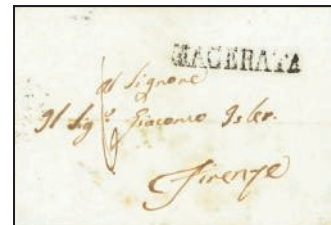 MACERATA
Al Signore
Il Sig.e Giacomo Isler.
Firenze